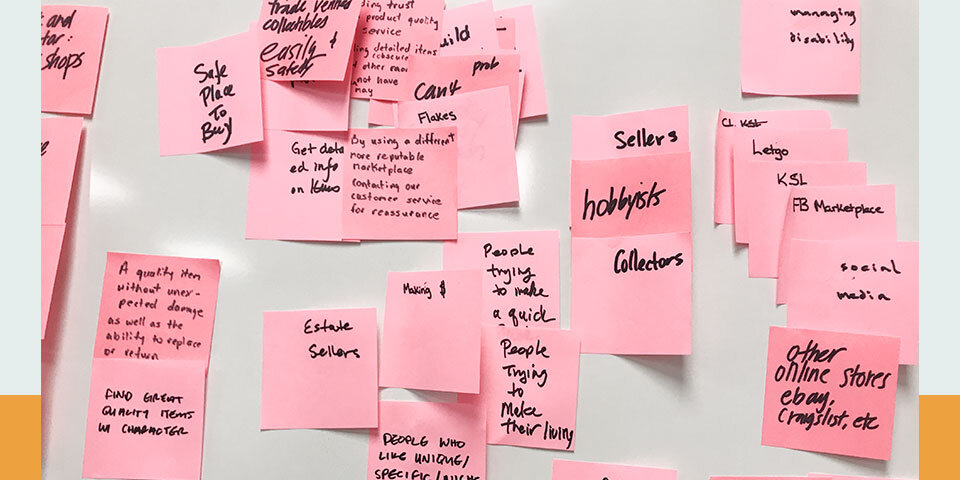 and
shops
Safe
Place
To
Buy
trade verified
collectibles
easily &
safely
ding trust
product quality
service
detailed items
other
not have
may
uild
prob
can't
Flakes
Get deta
ed info
on items
By using a different
more reputable
marketplace
contacting our
customer service
for reassurance
Sellers
hobbyists
Collectors
managing
disability
CL KSL
Letgo
KSL
FB Marketplace
social
media
other
online stores
ebay,
Craigslist, etc
A quality item
without unex-
pected damage
as well as the
ability to replace
or return
FIND GREAT
QUALITY ITEMS
W/ CHARACTER
Estate
Sellers
Making $
People
trying
to make
a quick
People
Trying
to
Make
their living
PEOPLE WHO
LIKE UNIQUE/
SPECIFIC/